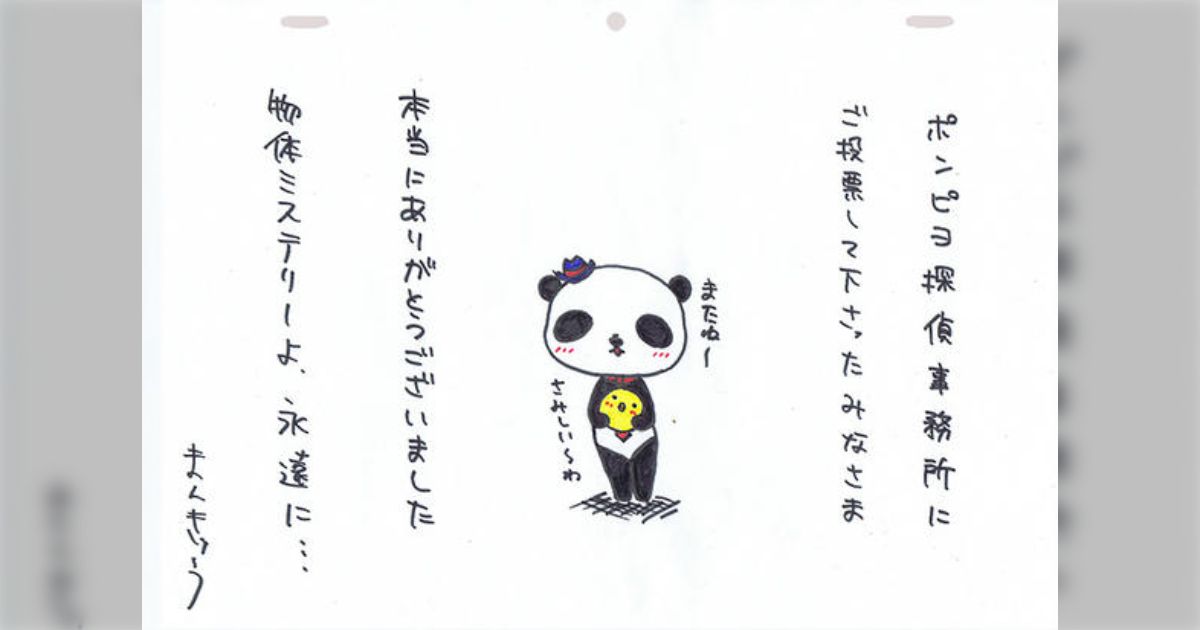 ポンピヨ探偵事務所に
ご投票して下さったみなさま
またね〜
さみしい〜わ
本当にありがとうございました
物体ミステリーよ、永遠に…
まんきゅう